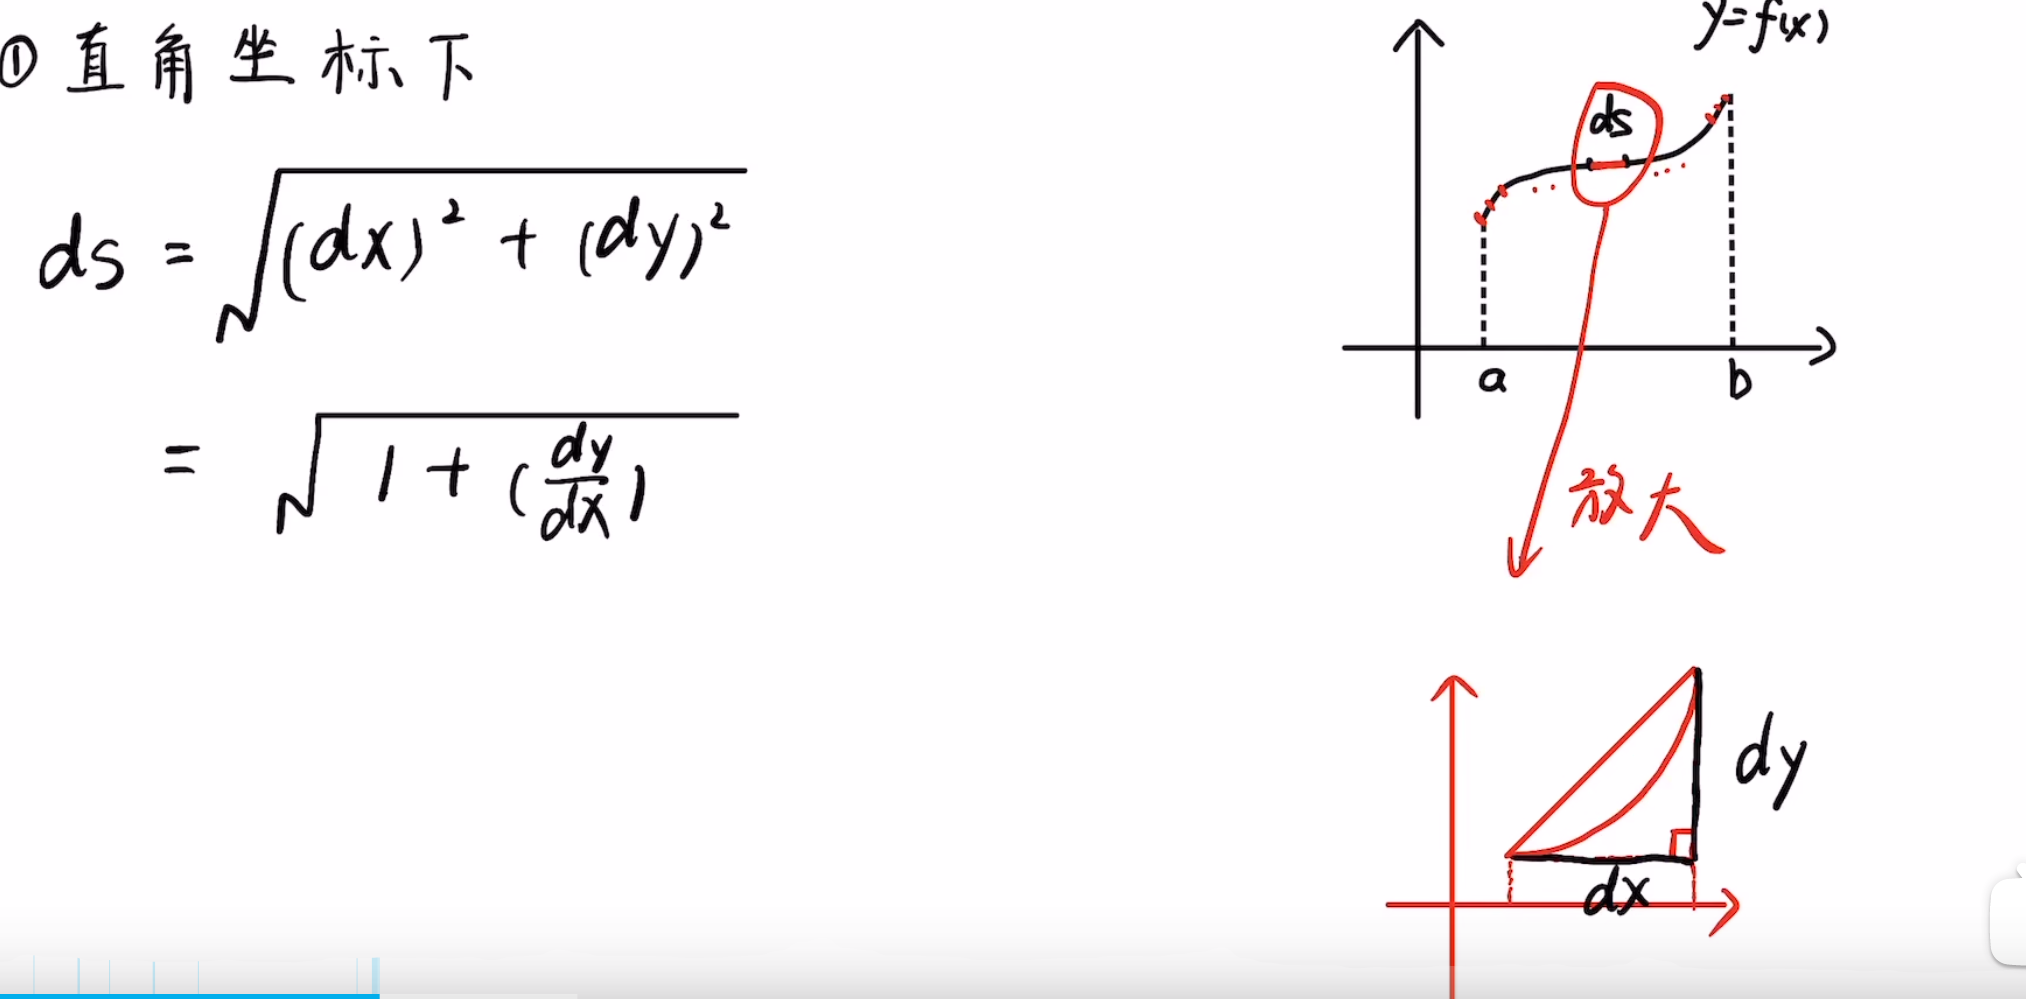 ① 直角坐标下
ds = √((dx)² + (dy)²)
= √(1 + (dy/dx))
y=f(x)
ds
a
b
放大
dy
dx